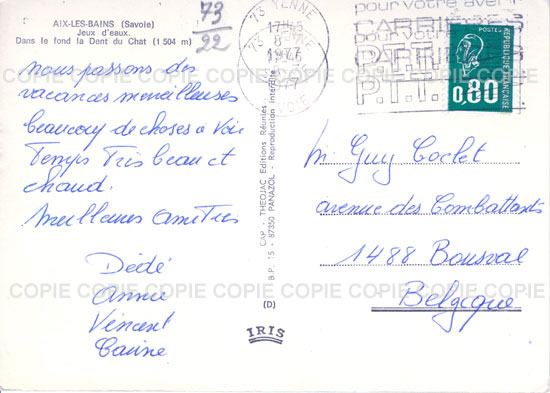 AIX-LES-BAINS (Savoie)
Jeux d'eaux.
Dans le fond la Dent du Chat (1 504 m)
73
22
nous passons des
vacances merveilleuses
beaucoup de choses à voir
Temps Très beau et
chaud.
Meilleures amitiés
Dédé
Annie
Vincent
Carine
CAP - THEOJAC Editions Réunies
B.P. 15 - 87350 PANAZOL - Reproduction Interdite
(D)
IRIS
73 YENNE
1977
SAVOIE
pour votre avenir
CARRIERES
P.T.T.
POSTES
0,80
REPUBLIQUE FRANCAISE
M. Guy Coclet
avenue des Combattants
1488 Bousval
Belgique
COPIE COPIE COPIE COPIE COPIE COPIE COPIE
COPIE COPIE COPIE COPIE COPIE COPIE COPIE